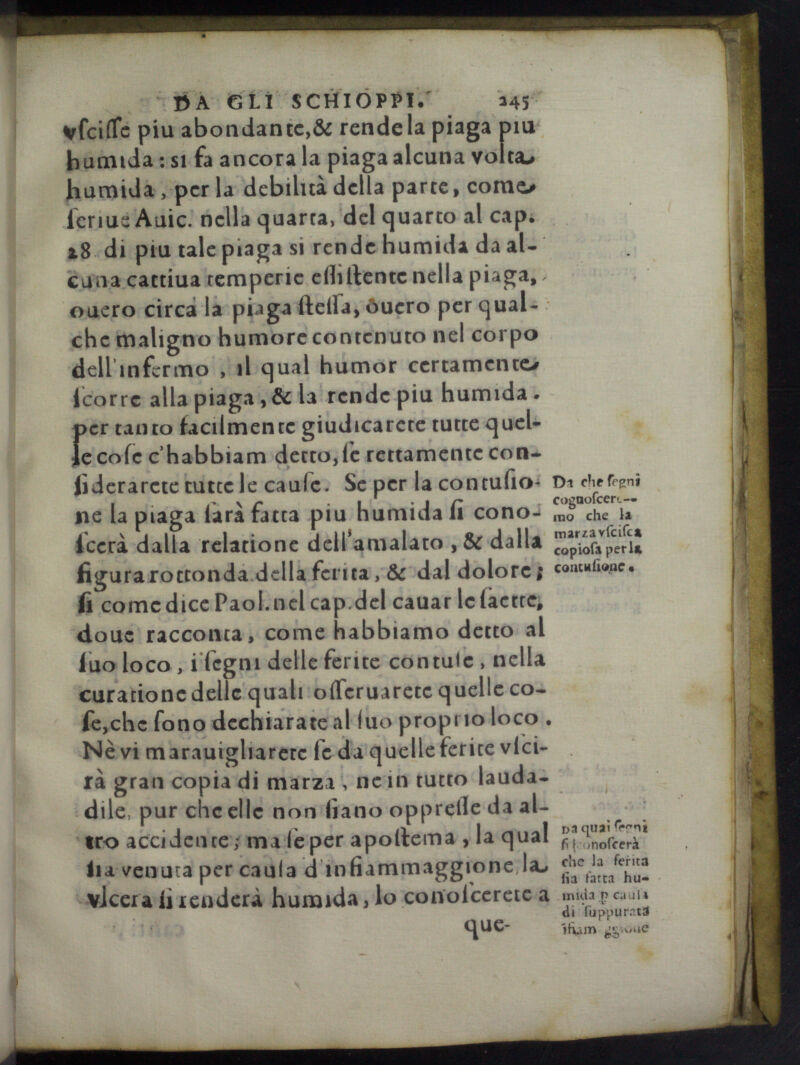 DA GLI SCHIOPPI. 245
vſciſſe piu abondante,& rende la piaga piu
humida : si fa ancora la piaga alcuna volta
humida, per la debilità della parte, come
ſcriue Auic. nella quarta, del quarto al cap.
28 di piu tale piaga si rende humida da al-
cuna cattiua temperie eſſiſtente nella piaga,
ouero circa la piaga ſteſſa, ouero per qual-
che maligno humore contenuto nel corpo
dell'infermo , il qual humor certamente
ſcorre alla piaga , & la rende piu humida .
per tanto facilmente giudicarete tutte quel-
le coſe c'habbiam detto, ſe rettamente con-
ſiderarete tutte le cauſe. Se per la contuſio-
ne la piaga ſarà fatta piu humida ſi cono-
ſcerà dalla relatione dell'amalato , & dalla
figura rottonda della ferita, & dal dolore ;
ſi come dice Paol. nel cap. del cauar le ſaette,
doue racconta, come habbiamo detto al
ſuo loco, i ſegni delle ferite contuſe , nella
curatione delle quali oſſeruarete quelle co-
ſe,che ſono dechiarate al ſuo proprio loco .
Nè vi marauigliarete ſe da quelle ferite vſci-
rà gran copia di marza , ne in tutto lauda-
dile, pur che elle non ſiano oppreſſe da al-
tro accidente ; ma ſe per apoſtema , la qual
ſia venuta per cauſa d'infiammaggione, la
vlcera ſi renderà humida, lo conoſcerete a
que-
Da che ſegni
cognoſcere--
mo che la
marza vſciſca
copioſa per la
contuſione.
Da quai ſegni
ſi conoſcerà
che la ferita
ſia fatta hu-
mida p cauſa
di ſuppurata